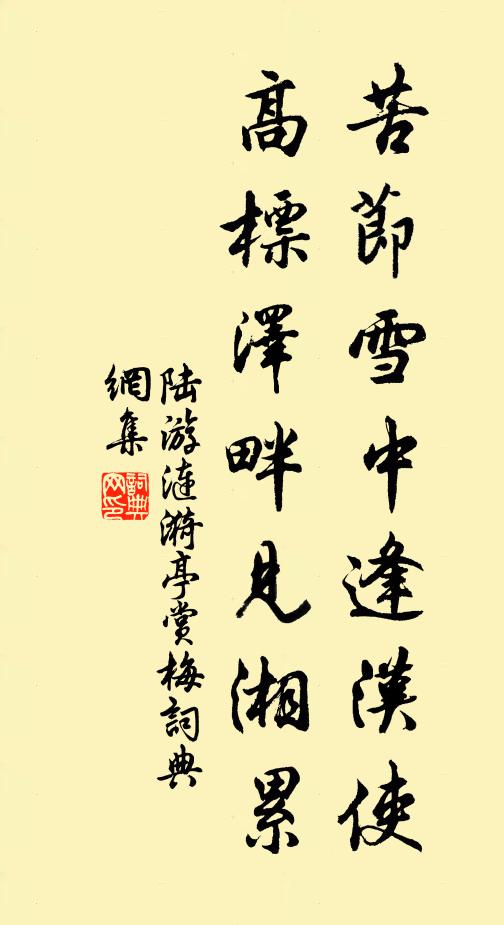 苦節雪中逢漢使
高標澤畔見湘累
陆游漣漪亭賞梅詞典
網集
詞典網印